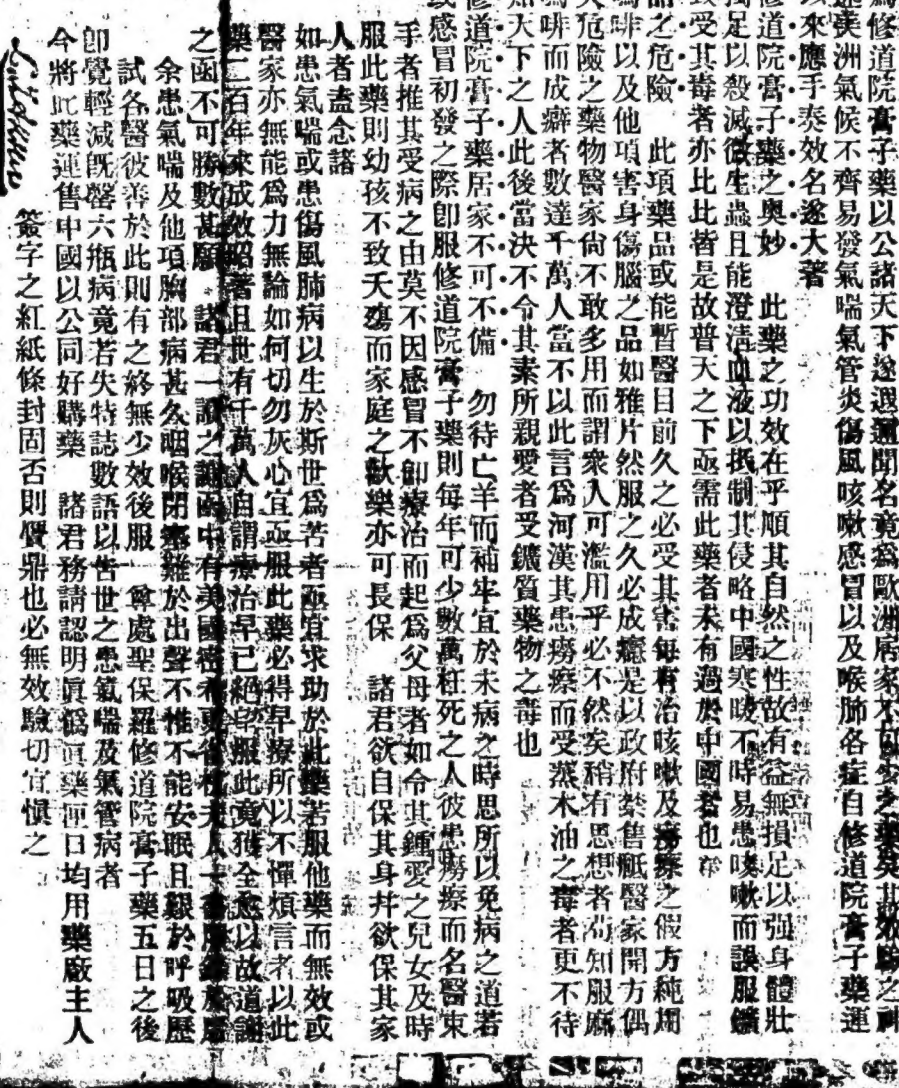 爲修道院膏子藥以公諸天下遂遐邇聞名竟爲歐洲居家不可少之藥矣其效驗之神
速美洲氣候不齊易發氣喘氣管炎傷風咳嗽感冒以及喉肺各症自修道院膏子藥運
以來應手奏效名遂大著
修道院膏子藥之奧妙 此藥之功效在乎順其自然之性故有益無損足以强身體壯
足以殺滅微生蟲且能澄清血液以抵制其侵略中國寒暖不時易患咳嗽而誤服鑛
受其毒者亦比比皆是故普天之下亟需此藥者未有過於中國者也
品之危險 此項藥品或能暫醫目前久之必受其害每有治咳嗽及癆瘵之假方純用
啡以及他項害身傷腦之品如雅片然服之久必成癮是以政府禁售醫家開方偶
大危險之藥物醫家尙不敢多用而謂衆人可濫用乎必不然矣稍有思想者苟知服麻
啡而成癖者數達千萬人當不以此言爲河漢其患癆瘵而受蒸木油之毒者更不待
天下之人此後當決不令其素所親愛者受鑛質藥物之毒也
修道院膏子藥居家不可不備 勿待亡羊而補牢宜於未病之時思所以免病之道若
或感冒初發之際卽服修道院膏子藥則每年可少數萬枉死之人彼患癆瘵而名醫束
手者推其受病之由莫不因感冒不卽療治而起爲父母者如令其鍾愛之兒女及時
服此藥則幼孩不致夭殤而家庭之歡樂亦可長保 諸君欲自保其身幷欲保其家
人者盍念諸
如患氣喘或患傷風肺病以生於斯世爲苦者亟宜求助於此藥若服他藥而無效或
醫家亦無能爲力無論如何切勿灰心宜亟服此藥必得早療所以不憚煩言者以此
藥二百年來成效昭著且世有千萬人自謂療治早已絕望服此竟獲全愈以故道謝
之函不可勝數甚願 諸君一讀之謝函中有美國
余患氣喘及他項胸部病甚久咽喉閉塞難於出聲不惟不能安眠且艱於呼吸歷
試各醫彼善於此則有之終無少效後服 尊處聖保羅修道院膏子藥五日之後
卽覺輕減旣罄六瓶病竟若失特誌數語以告世之患氣喘及氣管病者
今將此藥運售中國以公同好購藥 諸君務請認明眞僞眞藥匣口均用藥廠主人
簽字之紅紙條封固否則贋鼎也必無效驗切宜愼之